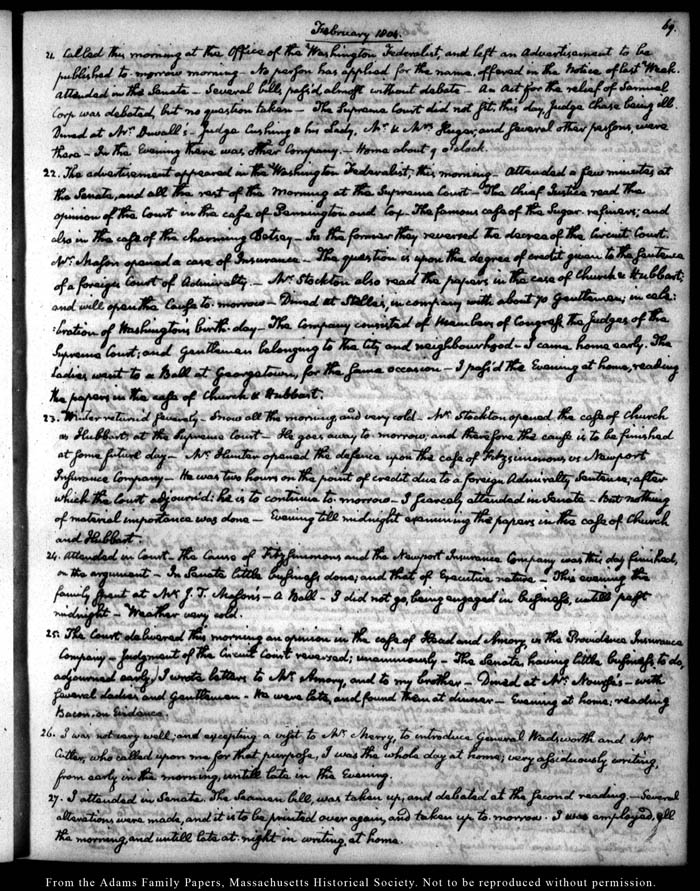 February 1804.
69.
21. Called this morning at the Office of the Washington Federalist, and left an Advertisement to be
published to-morrow morning — No person has applied for the name, offered in the Notice of last Week.
Attended in the Senate — Several bills pass'd almost without debate — An Act for the relief of Samuel
Corp was debated, but no question taken — The Supreme Court did not sit, this day, Judge Chase being ill.
Dined at Mr. Duvall's — Judge Cushing & his Lady, Mr. & Mrs. Huger, and several other persons, were
there — In the Evening there was other Company. — Home about 9 o'clock.
22. The advertisement appeared in the Washington Federalist, this morning — Attended a few minutes at
the Senate, and all the rest of the Morning at the Supreme Court — The Chief Justice read the
opinion of the Court in the case of Pennington and Cox. The famous case of the Sugar-refiners; and
also in the case of the charming Betsey — In the former they reversed the decree of the Circuit Court.
Mr. Mason opened a case of Insurance — The question is upon the degree of credit given to the Sentence
of a foreign Court of Admiralty. — Mr. Stockton also read the papers in the case of Church & Hubbart;
and will open the Cause to-morrow — Dined at Stelle's, in company with about 70 Gentlemen; in cele:
:bration of Washington's birth-day — The Company consisted of Members of Congress, the Judges of the
Supreme Court, and Gentlemen belonging to the city and neighbourhood — I came home early. The
Ladies went to a Ball at Georgetown, for the same occasion — I pass'd the Evening at home, reading
the papers in the case of Church & Hubbart.
23. Winter returned severely — Snow all the morning, and very cold — Mr. Stockton opened the case of Church
vs Hubbart at the Supreme Court — He goes away to-morrow, and therefore the cause is to be finished
at some future day — Mr. Hunter opened the defence upon the case of Fitzsimmons vs Newport
Insurance Company — He was two hours on the point of credit due to a foreign Admiralty Sentence; after
which the Court adjourn'd: he is to continue to-morrow — I scarcely attended in Senate — But nothing
of material importance was done — Evening till midnight examining the papers in the case of Church
and Hubbart.
24. Attended in Court — the Cause of Fitzsimmons and the Newport Insurance Company was this day finished,
on the argument — In Senate little business done; and that of Executive nature — This evening the
family spent at Mr. J. T. Mason's — A Ball — I did not go, being engaged in business, untill past
midnight — Weather very cold.
25. The Court delivered this morning an opinion in the case of Head and Amory, vs the Providence Insurance
Company — Judgment of the Circuit Court reversed; unanimously — The Senate, having little business to do,
adjourned early; I wrote letters to Mr. Amory, and to my brother — Dined at Mr. Nourse's — with
several Ladies and Gentlemen — We were late, and found them at dinner — Evening at home; reading
Bacon, on Evidence.
26. I was not very well; and excepting a visit to Mr. Merry, to introduce General Wadsworth and Mr.
Cutler, who called upon me for that purpose, I was the whole day at home; very assiduously writing,
from early in the morning, untill late in the Evening.
27. I attended in Senate. The Seamen bill, was taken up, and debated at the second reading. — Several
alterations were made, and it is to be printed over again, and taken up to-morrow. I was employed, all
the morning, and untill late at night in writing, at home.
From the Adams Family Papers, Massachusetts Historical Society. Not to be reproduced without permission.